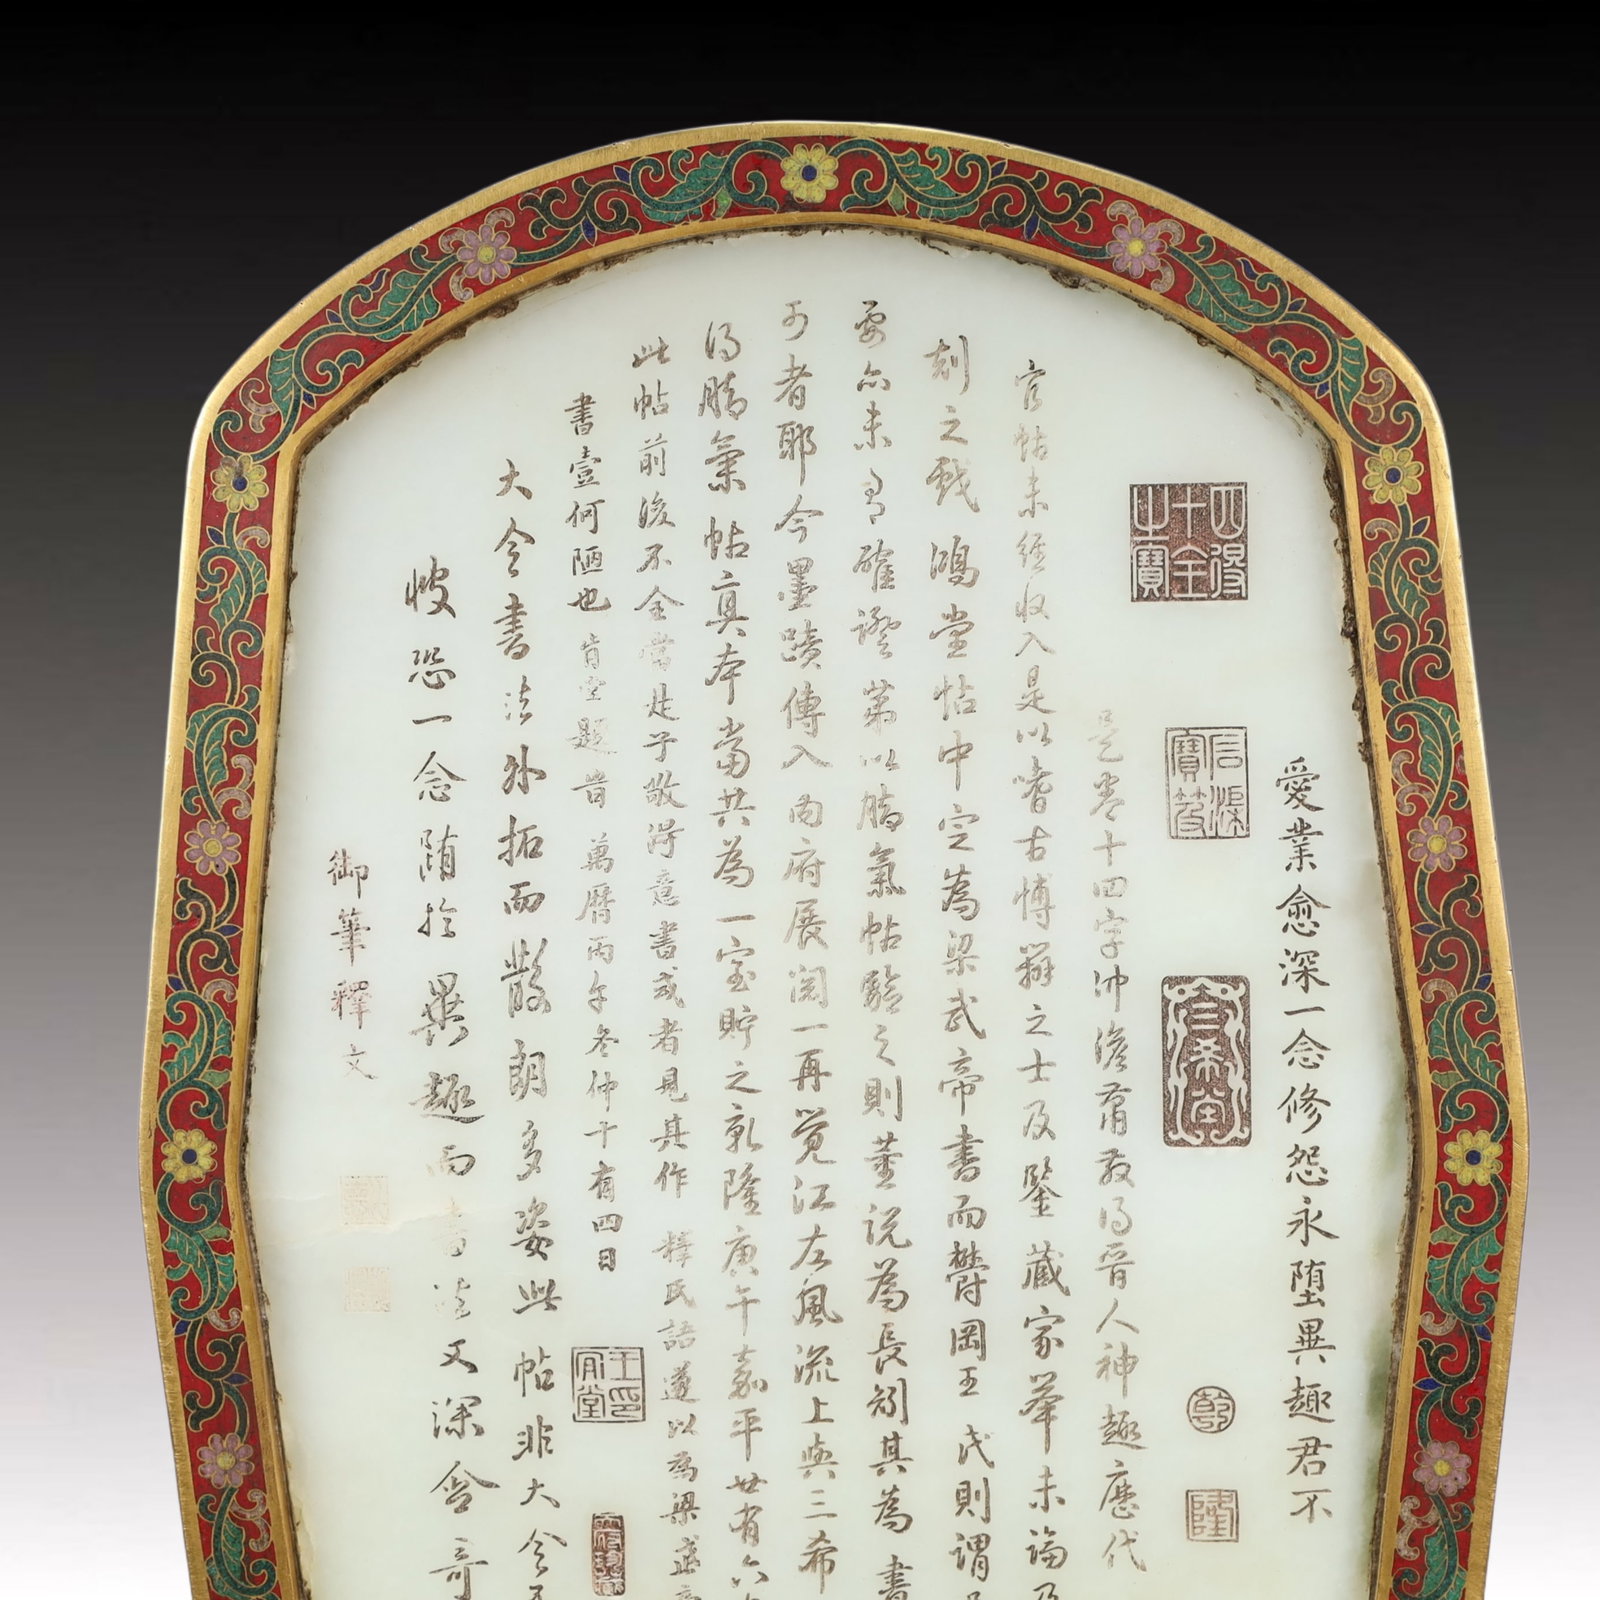 愛業愈深一念修怨永墮異趣君不
十全
寶笈
乾
隆
是卷十四字沖澹蕭散得晉人神趣歷代
官帖未經收入是以嗜古博辯之士及鑒藏家舉未論及
刻之戲鴻堂帖中定為梁武帝書而欝岡王氏則謂
要亦未有確證第以鵬氣帖驗之則董說為長矧其為書
可者耶今墨蹟傳入內府展閱一再覺江左風流上與三希
得鵬氣帖真本當共為一室貯之乾隆庚午嘉平廿有六
此帖前後不全當是子敬得意書或者見其作釋氏語遂以為梁武帝
書壹何陋也肯堂題時萬曆丙午冬仲十有四日
大令書法外拓而散朗多姿此帖非大令
恐一念隨於異趣而書法又深含奇
御筆釋文